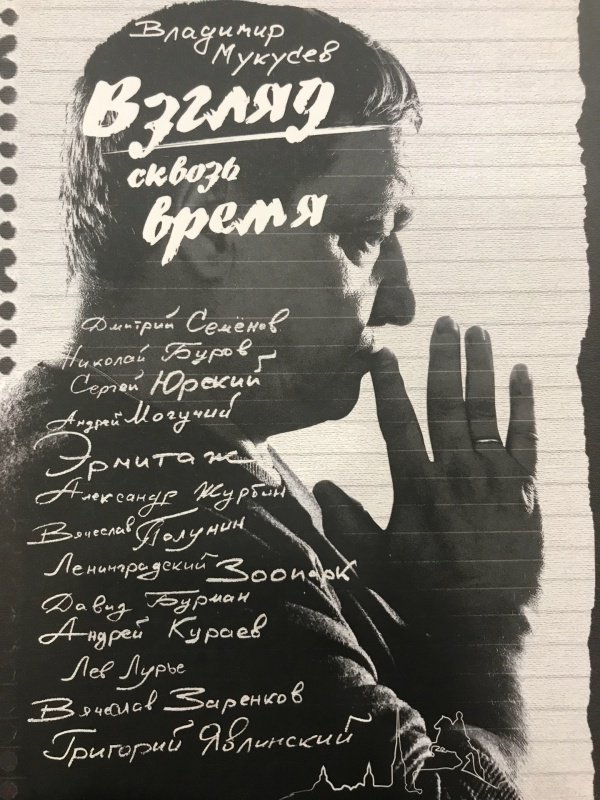 Владимир
Мукусев
Взгляд
сквозь
время
Дмитрий Семёнов
Николай Буров
Сергей Юрский
Андрей Могучий
Эрмитаж
Александр Журбин
Вячеслав Полунин
Ленинградский Зоопарк
Давид Бурман
Андрей Кураев
Лев Лурье
Вячеслав Заренков
Григорий Явлинский